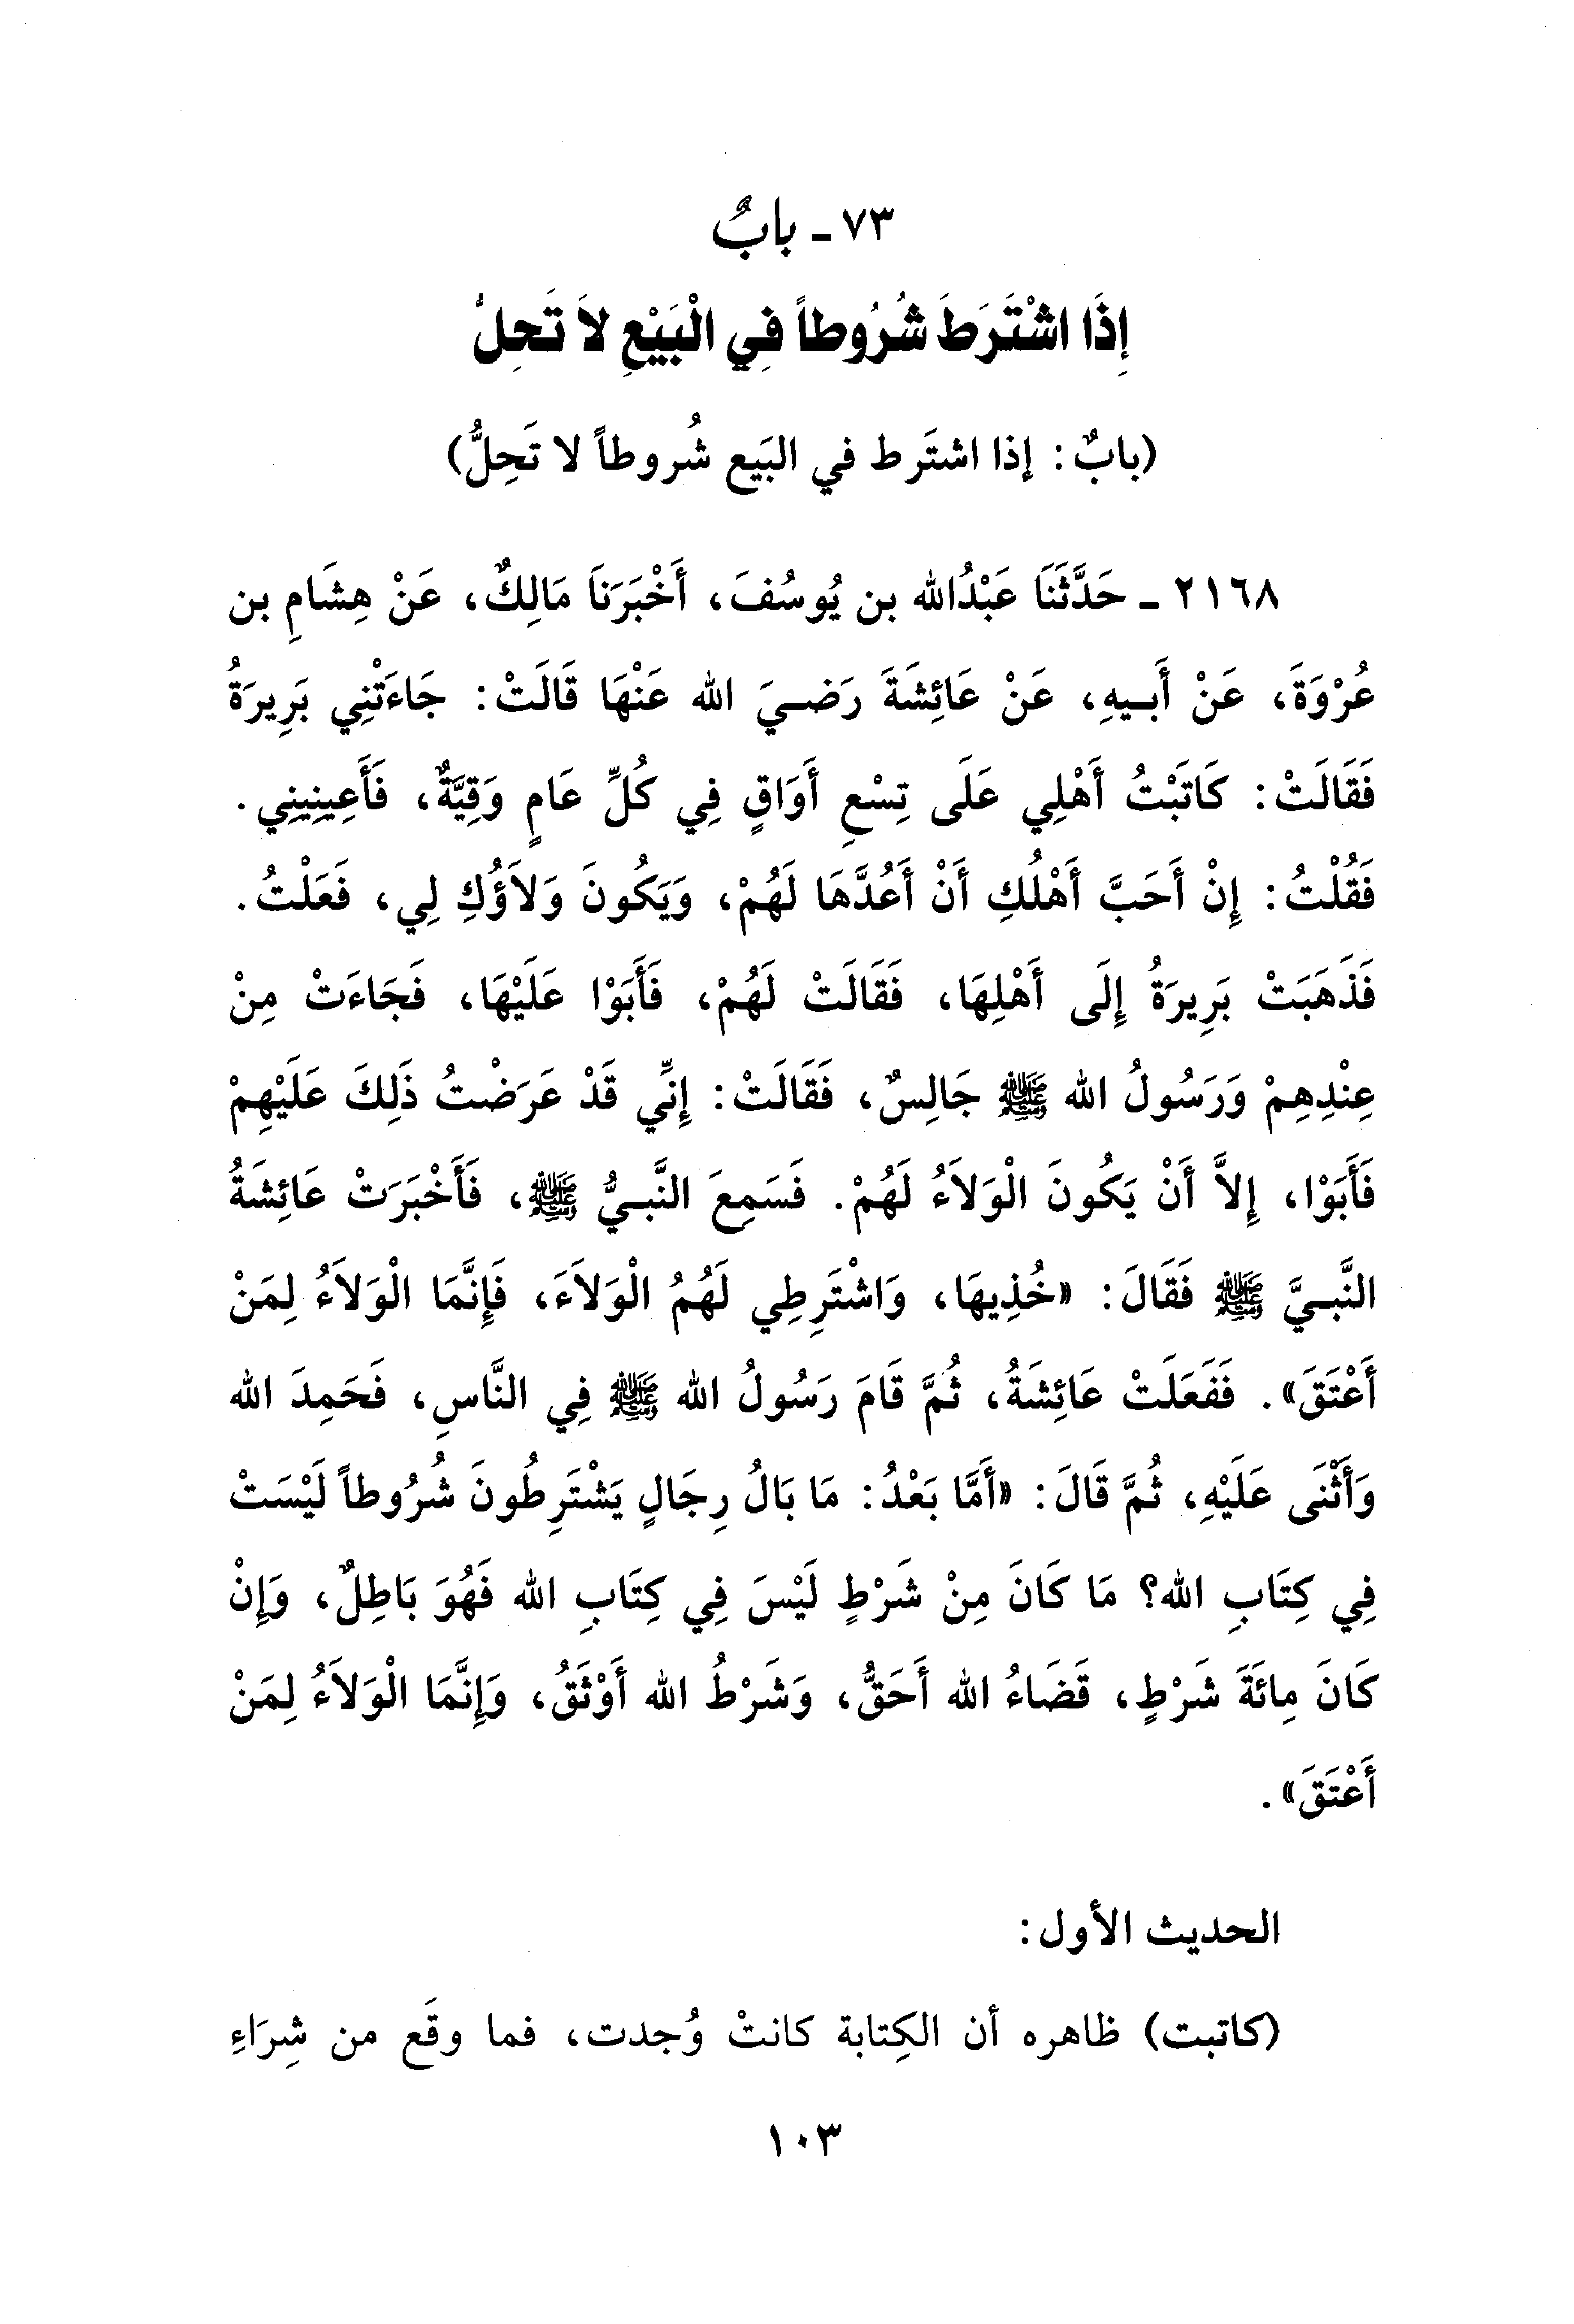 ٧٣ - بابٌ
إِذَا اشْتَرَطَ شُرُوطاً فِي الْبَيْعِ لاَ تَحِلُّ
(بابٌ: إذا اشتَرط في البَيع شُروطاً لا تَحِلُّ)
٢١٦٨ - حَدَّثَنَا عَبْدُالله بن يُوسُفَ، أَخْبَرَنَا مَالِكٌ، عَنْ هِشَامِ بن
عُرْوَةَ، عَنْ أَبِيهِ، عَنْ عَائِشَةَ رَضيَ الله عَنْهَا قَالَتْ: جَاءَتْنِي بَرِيرَةُ
فَقَالَتْ: كَاتَبْتُ أَهْلِي عَلَى تِسْعِ أَوَاقٍ فِي كُلِّ عَامٍ وَقِيَّةٌ، فَأَعِينِينِي.
فَقُلْتُ: إِنْ أَحَبَّ أَهْلُكِ أَنْ أَعُدَّهَا لَهُمْ، وَيَكُونَ وَلاَؤُكِ لِي، فَعَلْتُ.
فَذَهَبَتْ بَرِيرَةُ إِلَى أَهْلِهَا، فَقَالَتْ لَهُمْ، فَأَبَوْا عَلَيْهَا، فَجَاءَتْ مِنْ
عِنْدِهِمْ وَرَسُولُ الله ﷺ جَالِسٌ، فَقَالَتْ: إِنِّي قَدْ عَرَضْتُ ذَلِكَ عَلَيْهِمْ
فَأَبَوْا، إِلاَّ أَنْ يَكُونَ الْوَلاَءُ لَهُمْ. فَسَمِعَ النَّبيُّ ﷺ، فَأَخْبَرَتْ عَائِشَةُ
النَّبيَّ ﷺ فَقَالَ: «خُذِيهَا، وَاشْتَرِطِي لَهُمُ الْوَلاَءَ، فَإِنَّمَا الْوَلاَءُ لِمَنْ
أَعْتَقَ». فَفَعَلَتْ عَائِشَةُ، ثُمَّ قَامَ رَسُولُ الله ﷺ فِي النَّاسِ، فَحَمِدَ الله
وَأَثْنَى عَلَيْهِ، ثُمَّ قَالَ: «أَمَّا بَعْدُ: مَا بَالُ رِجَالٍ يَشْتَرِطُونَ شُرُوطاً لَيْسَتْ
فِي كِتَابِ الله؟ مَا كَانَ مِنْ شَرْطٍ لَيْسَ فِي كِتَابِ الله فَهُوَ بَاطِلٌ، وَإِنْ
كَانَ مِائَةَ شَرْطٍ، قَضَاءُ الله أَحَقُّ، وَشَرْطُ الله أَوْثَقُ، وَإِنَّمَا الْوَلاَءُ لِمَنْ
أَعْتَقَ».
الحديث الأول:
(كاتبت) ظاهره أن الكِتابة كانتْ وُجدت، فما وقَع من شِرَاءِ
١٠٣